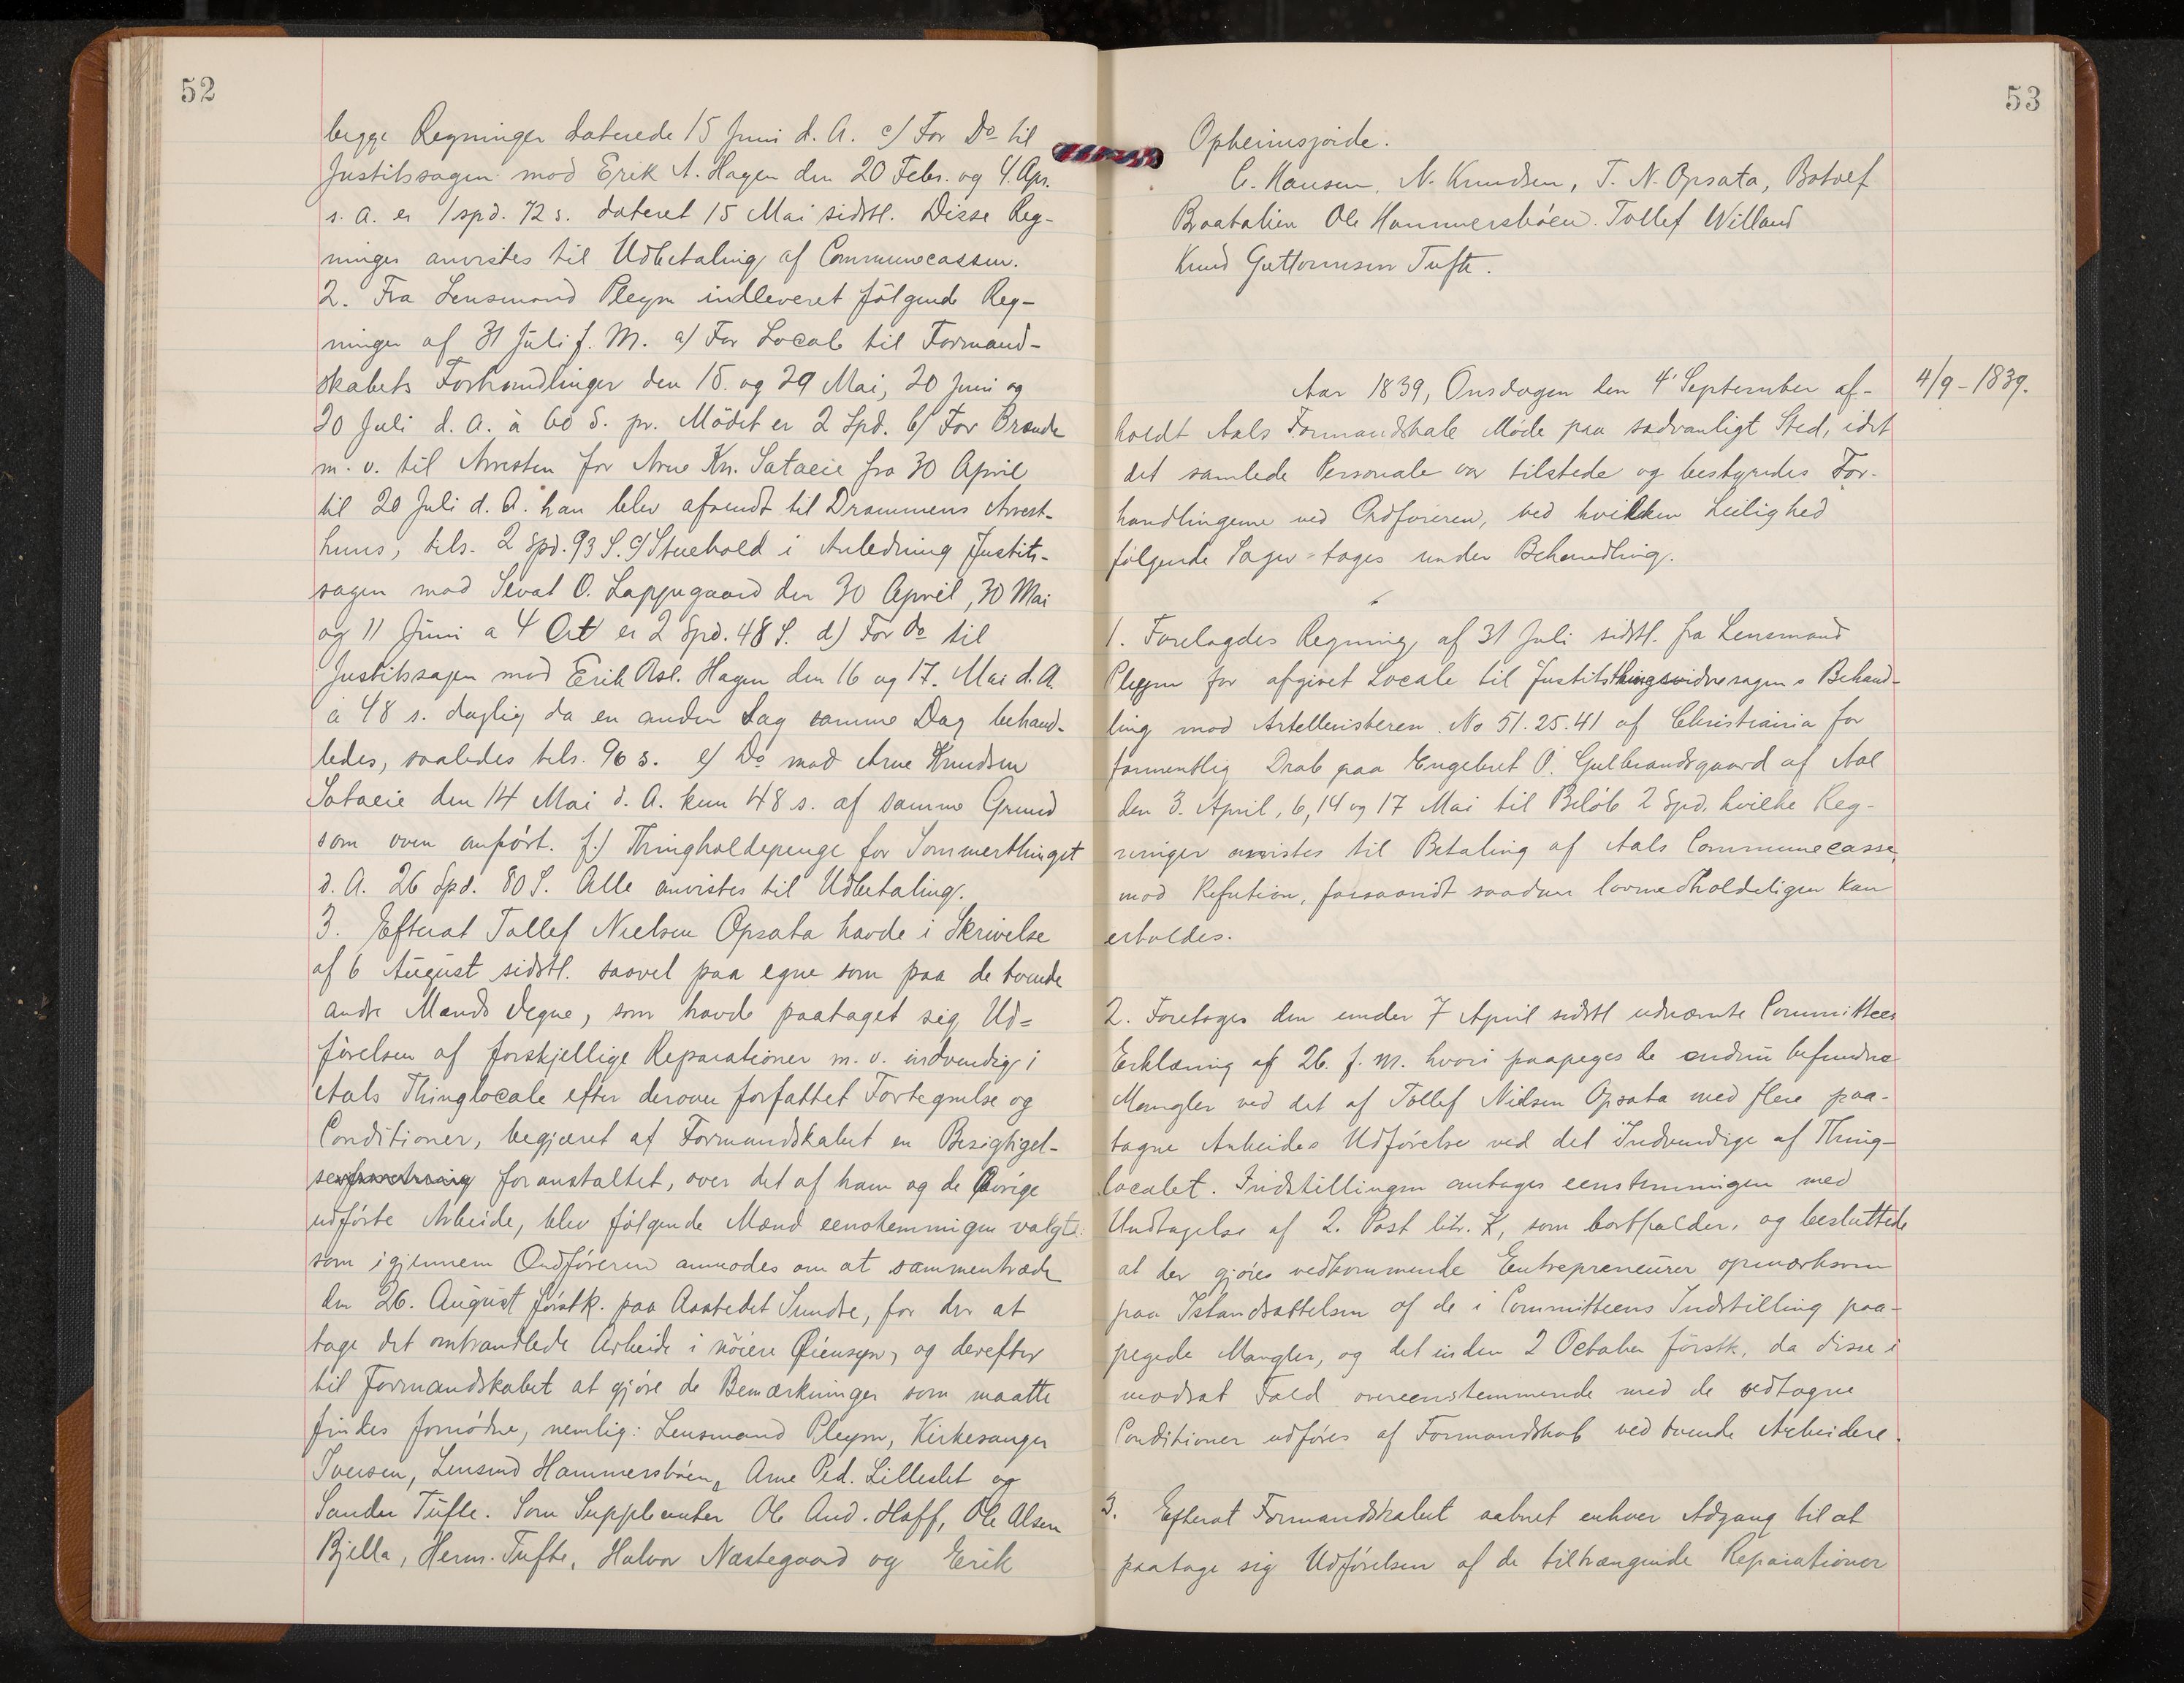 52
begge Regninger daterede 15 Juni d. A. c) For Do til
Justitssagen mod Erik A. Hagen den 20 Febr. og 4. Apr.
s. A. er 1 spd. 72 s. dateret 15 Mai sidstl. Disse Reg-
ninger anvistes til Udbetaling af Communecassen.
2. Fra Lensmand Pleym indleveret følgende Reg-
ninger af 31 Juli f. M. a) For Locale til Formand-
skabets Forhandlinger den 15. og 29 Mai, 20 Juni og
20 Juli d. A. à 60 S. pr. Mödet er 2 Spd. b) For Brænde
m. v. til Arresten for Arne Kn. Sataeie fra 30 April
til 20 Juli d. A. han blev afsendt til Drammens Arrest-
huus, tils. 2 Spd. 93 S. c) Stuehold i Anledning Justits-
sagen mod Sevat O. Lappegaard den 30 April, 30 Mai
og 11 Juni a 4 Ort er 2 Spd. 48 S. d) For do til
Justitssagen mod Erik Asl. Hagen den 16 og 17. Mai d. A.
à 48 s. daglig da en anden Sag samme Dag behand-
ledes, saaledes tils. 96 s. e) Do mod Arne Knudsen
Sataeie den 14 Mai d. A. kun 48 s. af samme Grund
som oven anført. f.) Thingholdepenge for Sommerthinget
d. A. 26 Spd. 80 S. Alle anvistes til Udbetaling.
3. Efterat Tollef Nielsen Opsata havde i Skrivelse
af 6 August sidstl. saavel paa egne som paa de tvende
andre Mænds Vegne, som havde paataget sig Ud=
førelsen af forskjellige Reparationer m. v. indvendig i
Aals Thinglocale efter derover forfattet Fortegnelse og
Conditioner, begjæret af Formandskabet en Besigtigel-
se foranstaltet, over det af ham og de Øvrige
udførte Arbeide, blev følgende Mænd eenstemmigen valgte:
som igjennem Ordføreren anmodes om at sammentræde
den 26. August førstk. paa Aastedet Sundre, for der at
tage det omhandlede Arbeide i nöiere Øiensyn, og derefter
til Formandskabet at gjøre de Bemærkninger som maatte
findes fornødne, nemlig: Lensmand Pleym, Kirkesanger
Iversen, Lensmd Hammersbøen, Arne Ped. Lilleslet og
Sander Tufte. Som Supplenter Ole And. Hoff, Ole Olsen
Bjella, Herm. Tufte, Halvor Næstegaard og Erik
53
Opheimsjorde.
C. Hansen, N. Knudsen, T. N. Opsata, Botolf
Braatalien Ole Hammersbøen. Tollef Willand
Knud Guttormsen Tufte.
4/9 - 1839.
Aar 1839, Onsdagen den 4' September af-
holdt Aals Formandskab Møde paa sædvanligt Sted, idet
det samlede Personale var tilstede og bestyredes For-
handlingerne ved Ordføreren, ved hvilken Leilighed
følgende Sager tages under Behandling.
1. Forelagdes Regning af 31 Juli sidstl. fra Lensmand
Pleym for afgivet Locale til Justitsthingsvidnesagens Behand-
ling mod Artelleristeren No 51.25.41 af Christiania for
formentlig Drab paa Engebret O. Gulbrandsgaard af Aal
den 3. April, 6, 14 og 17 Mai til Beløb 2 Spd. hvilke Reg-
ninger anvistes til Betaling af Aals Communecasse,
mod Refution, forsaavidt saadan lovmedholdeligen kan
erholdes.
2. Foretoges den under 7 April sidstl udnævnte Committees
Erklæring af 26. f. M. hvori paapeges de endnu befundne
Mangler ved det af Tollef Nielsen Opsata med flere paa-
tagne Arbeides Udførelse ved det Indvendige af Thing-
localet. Indstillingen antages eenstemmigen med
Undtagelse af 2. Post litr. K, som bortfalder, og besluttede
at der gjøres vedkommende Entrepreneurer opmærksom
paa Istandsættelsen af de i Committeens Indstilling paa-
pegede Mangler, og det inden 2 October førstk. da disse i
modsat Fald overeenstemmende med de vedtagne
Conditioner udføres af Formandskab ved tvende Arbeidere.
3. Efterat Formandskabet aabnet enhver Adgang til at
paatage sig Udførelsen af de tiltrængende Reparationer